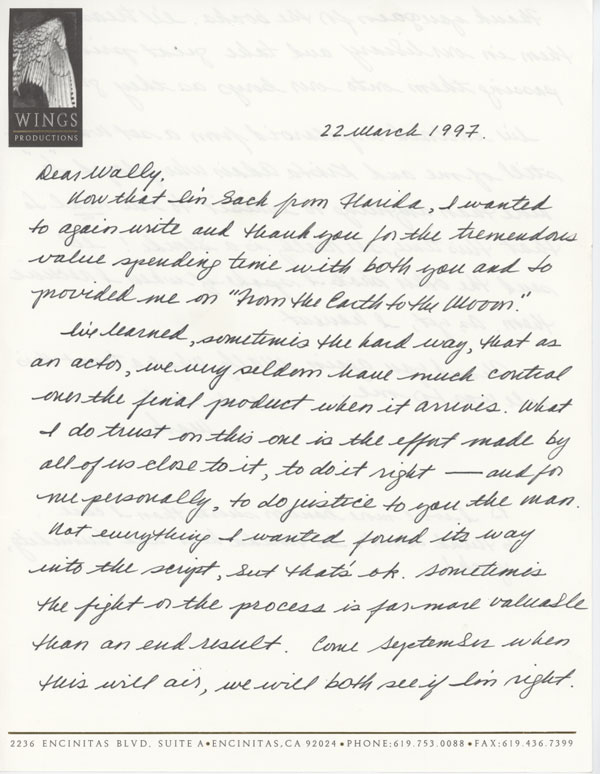 WINGS
PRODUCTIONS
22 March 1997.
Dear Wally,
Now that I'm back from Florida, I wanted
to again write and thank you for the tremendous
value spending time with both you and Jo
provided me on "From the Earth to the Moon."
I've learned, sometimes the hard way, that as
an actor, we very seldom have much control
over the final product when it arrives. What
I do trust on this one is the effort made by
all of us close to it, to do it right — and for
me personally, to do justice to you the man.
Not everything I wanted found its way
into the script, but that's ok. Sometimes
the fight or the process is far more valuable
than an end result. Come September when
this will air, we will both see if I'm right.
2236 ENCINITAS BLVD. SUITE A•ENCINITAS,CA 92024•PHONE:619.753.0088•FAX:619.436.7399